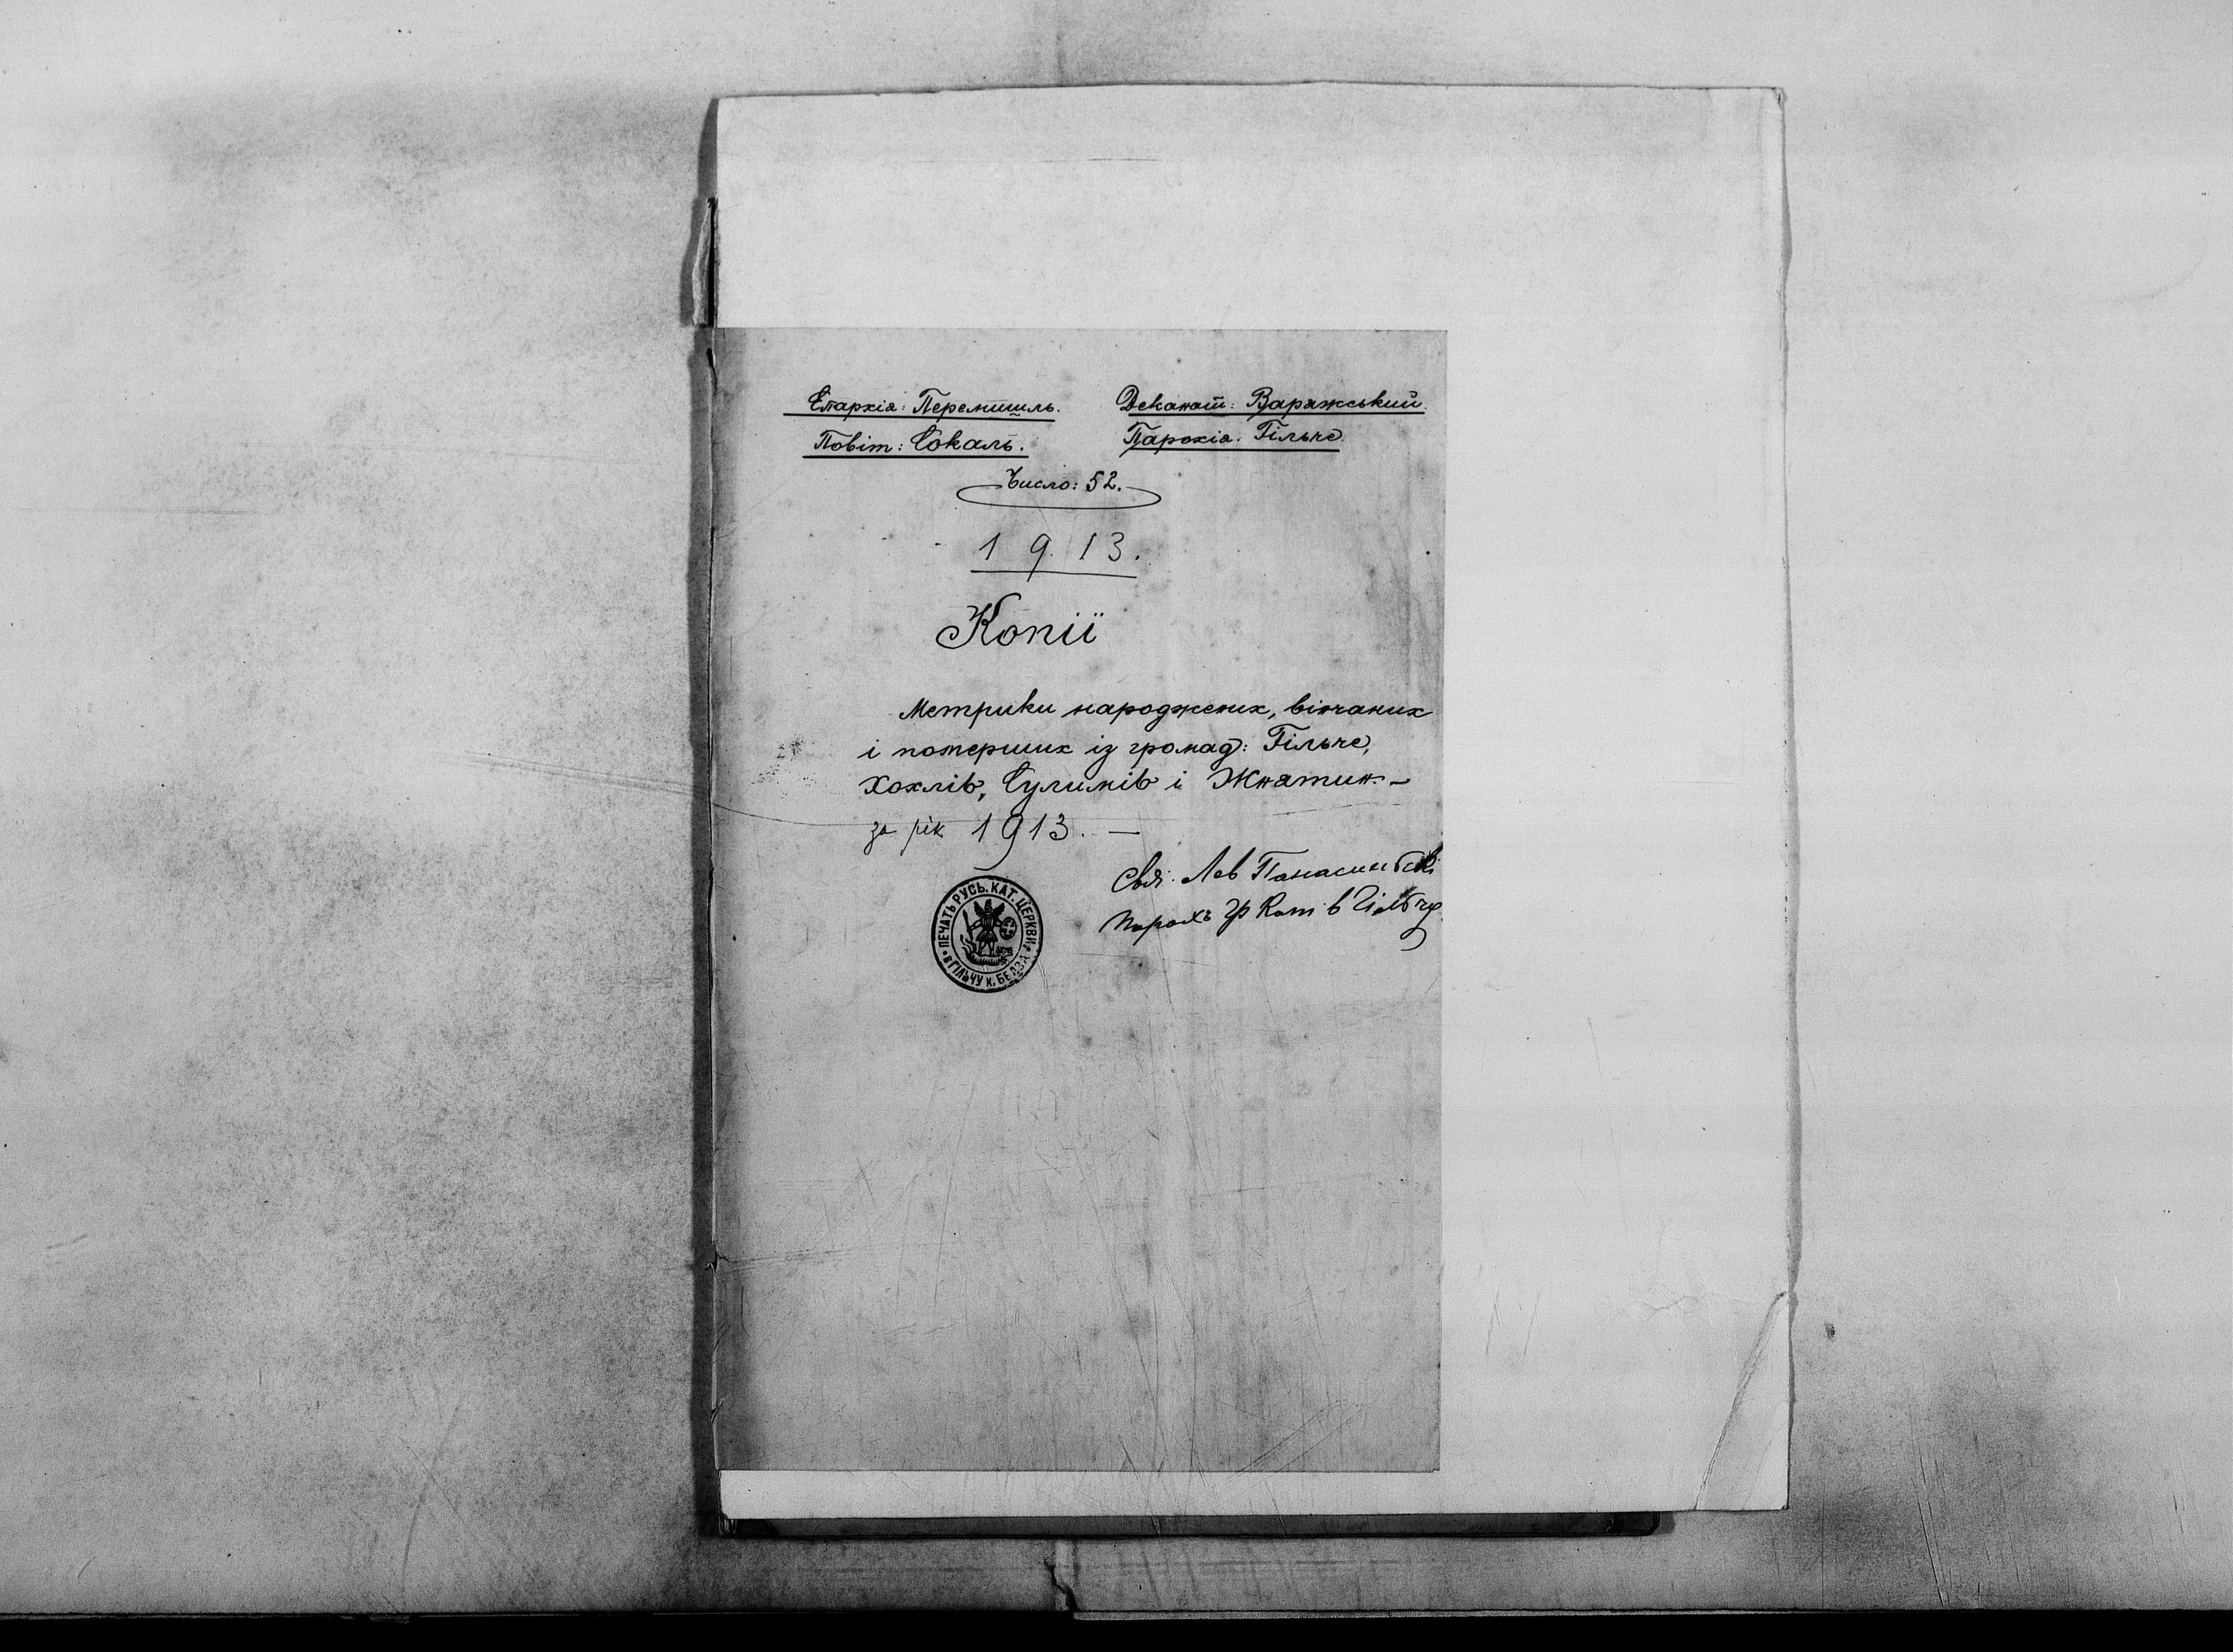 Епархія: Перемишль. Деканат: Варяжський.
Повіт: Сокаль. Парохія: Гільче.
Число: 52.
1913.
Копії
Метрики народжених, вінчаних
і померших із громад: Гільче,
Хохлів, Сулимів і Жнятин. –
за рік 1913. —
Свящ. Лев
парохъ гр кат в Гільчу
ПЕЧАТЬ РУСЬ. КАТ. ЦЕРКВИ
в ГІЛЬЧУ к. БЕЛЗА